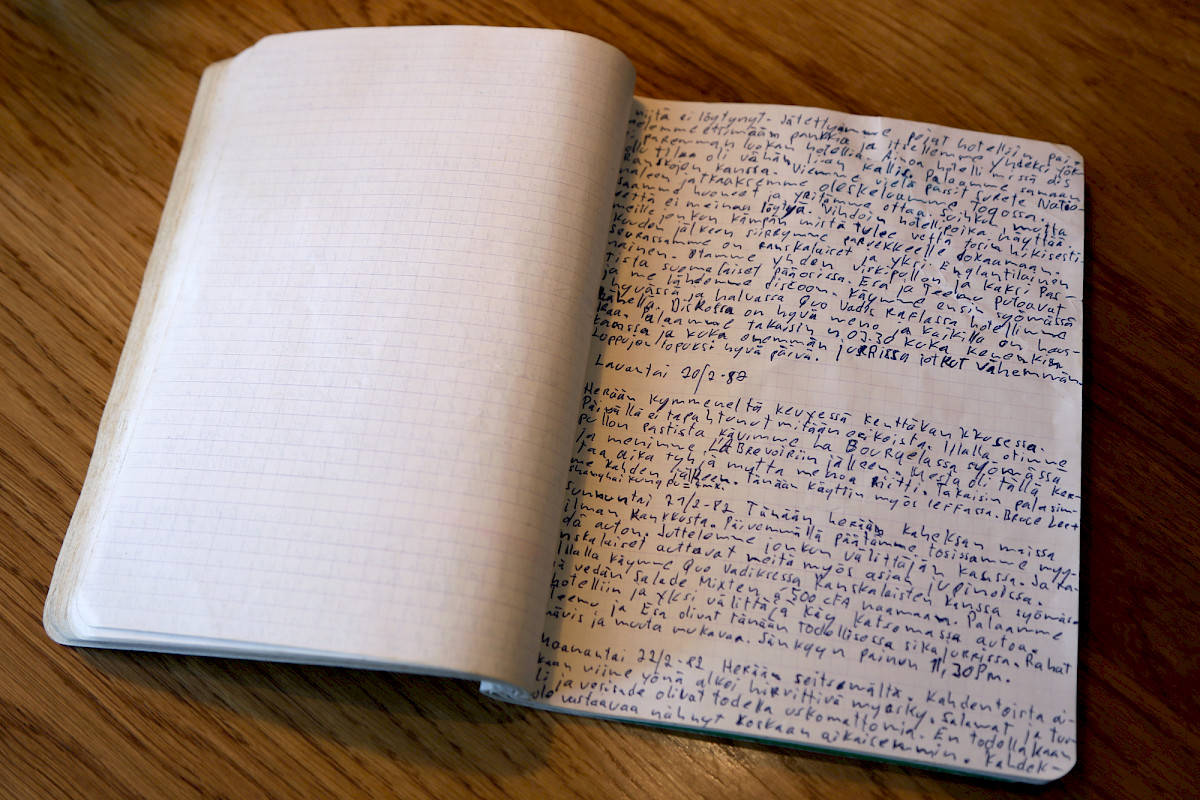 niitä ei löytynyt. Jätettyämme pojat hotelliin, pai-
nelemme etsimään pankkia ja itsellemme yhdeksi yök-
si paremman luokan hotellia. Ainoa hotelli missä dis
tilaa oli vähän liian kallis. Palaamme samaan
Ranskojen kanssa. Viemme vielä passit Surete Natio-
naleen jatkaaksemme oleskeluamme Togossa.
Saamme huoneet ja yritämme ottaa suihkun, mutta
vettä ei meinaa löytyä. Vihdoin hotellipoika näyttää
meille jonkun kämpän mistä tulee vettä tosin hikisesti.
Ruuan jälkeen siirrymme parvekkeelle dokaamaan.
Seurassamme on ranskalaiset ja yksi Englantilainen
nainen. Otamme yhden viskipullon ja kaksi Pas-
tista suomalaiset pääosissa. Esa ja Teemu putoavat
ja me lähdemme discoon. Käymme ensin syömässä
hyvässä ja halvassa Quo Vadis raflassa hotellimme
lähellä. Diskossa on hyvä meno ja kaikilla on haus-
kaa. Palaamme takaisin n. 03.30 kuka kenenkin
kanssa ja kuka enemmän jurrissa jotkut vähemmän.
Loppujen lopuksi hyvä päivä.
Lauantai 20/2-82
Herään kymmeneltä kevyessä kenttäkankkusessa.
Päivällä ei tapahtunut mitään erikoista. Illalla otimme
pullon pastista kävimme La Bourgelassa syömässä
ja menimme La Brevoiriin jälleen. Mesta oli tällä ker-
taa aika tyhjä mutta menoa riitti. Takaisin palasim-
me kahden jälkeen. Tänään käytiin myös leffassa. Bruce Lee +
Shanghai Kung Fu
Sunnuntai 21/2-82 Tänään herään kaheksan maissa
ilman kankkusta. Päivemmällä päätämme tosissamme myy-
dä auton. Juttelemme jonkun välittäjän kanssa. Ja ra-
nskalaiset auttavat meitä myös asian tiimoilta.
Illalla käymme Quo Vadiksessa Ranskalaisten kanssa syömäs-
sä vedän Salade Mixten á 500 CFA naamaan. Palaamme
hotelliin ja yksi välittäjä käy katsomassa autoa.
Teemu ja Esa olivat tänään todellisessa sikajurrissa. Rahat
hävis ja muuta mukavaa. Sänkyyn painun 11,30 pm.
Maanantai 22/2-82 Herään seitsemältä. Kahdentoista ai-
kaan viime yönä alkoi hirvittävä myrsky. Salamat ja tuu-
li ja vesisade olivat todella uskomattomia. En todellakaan
ole vastaavaa nähnyt koskaan aikaisemmin. Kahdek-